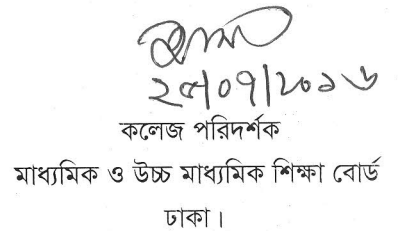 ২৫/০৭/২০১৬
কলেজ পরিদর্শক
মাধ্যমিক ও উচ্চ মাধ্যমিক শিক্ষা বোর্ড
ঢাকা।